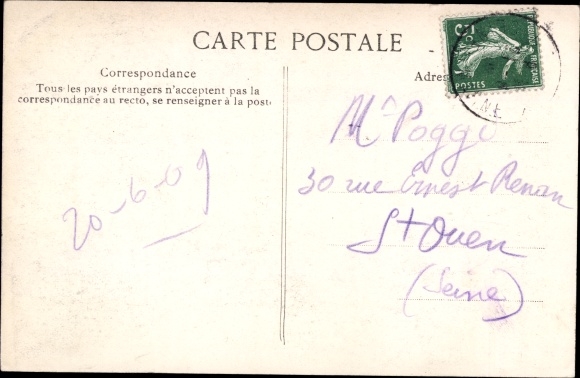 CARTE POSTALE
Correspondance
Tous les pays étrangers n'acceptent pas la
correspondance au recto, se renseigner à la poste
20-6-09
Adres
POSTES
Mr Poggi
30 rue Ernest Renan
St Ouen
(Seine)